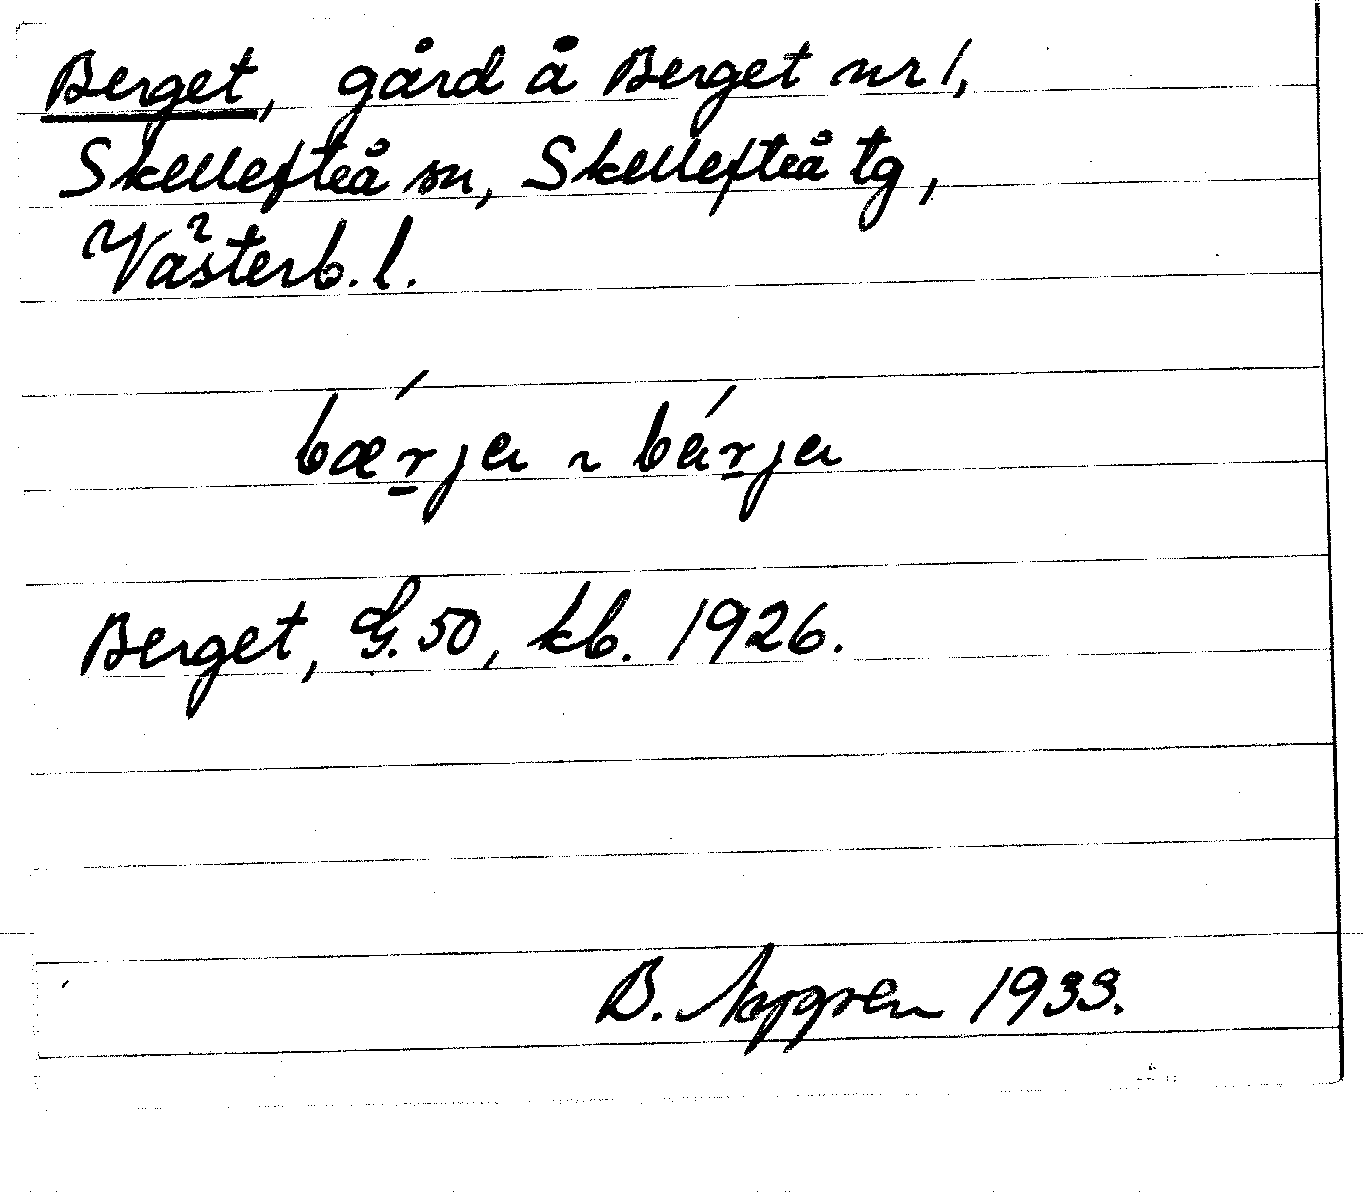 Berget, gård å Berget nr 1,
Skellefteå sn, Skellefteå tg,
Västerb. l.
bǽr̲ja ~ bár̲ja
Berget, G. 50, kb. 1926.
B. 1933.